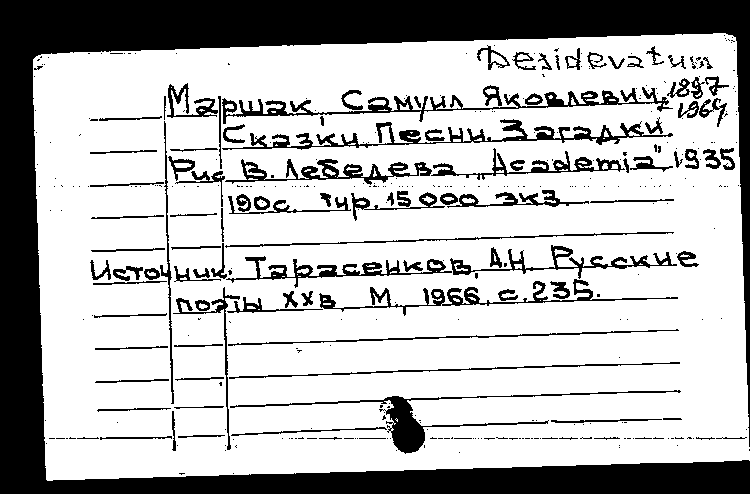 Desideratum
Маршак, Самуил Яковлевич, 1887-1964
Сказки. Песни. Загадки.
Рис. В. Лебедева. „Academia”, 1935
190с. тир. 15000 экз.
Источник: Тарасенков, А.Н. Русские
поэты XXв. М., 1966, с. 235.